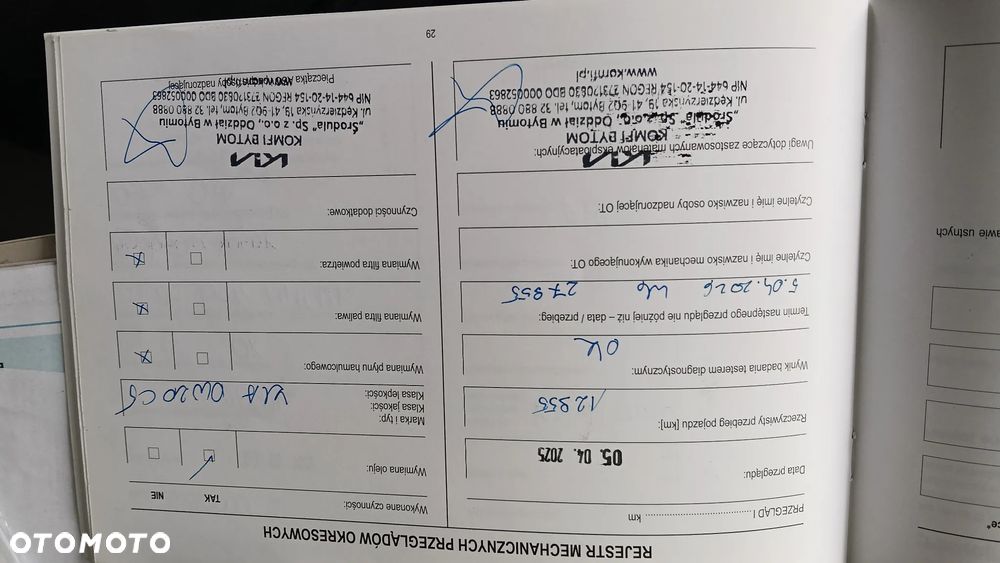 REJESTR MECHANICZNYCH PRZEGLĄDÓW OKRESOWYCH
PRZEGLĄD I .................................... km
Data przeglądu:
05. 04. 2025
Rzeczywisty przebieg pojazdu [km]:
12955
Wynik badania testerem diagnostycznym:
OK
Termin następnego przeglądu nie później niż – data / przebieg:
5.04.2026 27955
Czytelne imię i nazwisko mechanika wykonującego OT:
Czytelne imię i nazwisko osoby nadzorującej OT:
Uwagi dotyczące zastosowanych materiałów eksploatacyjnych:
KIA
KOMFI BYTOM
„Środula" Sp. z o.o., Oddział w Bytomiu
ul. Kędzierzyńska 19, 41-902 Bytom, tel. 32 880 0988
NIP 644-14-20-154 REGON 273170830 BDO 000052863
www.komfi.pl
Wykonane czynności:
TAK
NIE
Wymiana oleju:
Marka i typ:
Klasa jakości:
Klasa lepkości:
KIA 0W20 C5
Wymiana płynu hamulcowego:
Wymiana filtra paliwa:
Wymiana filtra powietrza:
Czynności dodatkowe:
KIA
KOMFI BYTOM
„Środula" Sp. z o.o., Oddział w Bytomiu
ul. Kędzierzyńska 19, 41-902 Bytom, tel. 32 880 0988
NIP 644-14-20-154 REGON 273170830 BDO 000052863
Pieczątka ASO i podpis osoby nadzorującej
29
awie ustnych
OTOMOTO